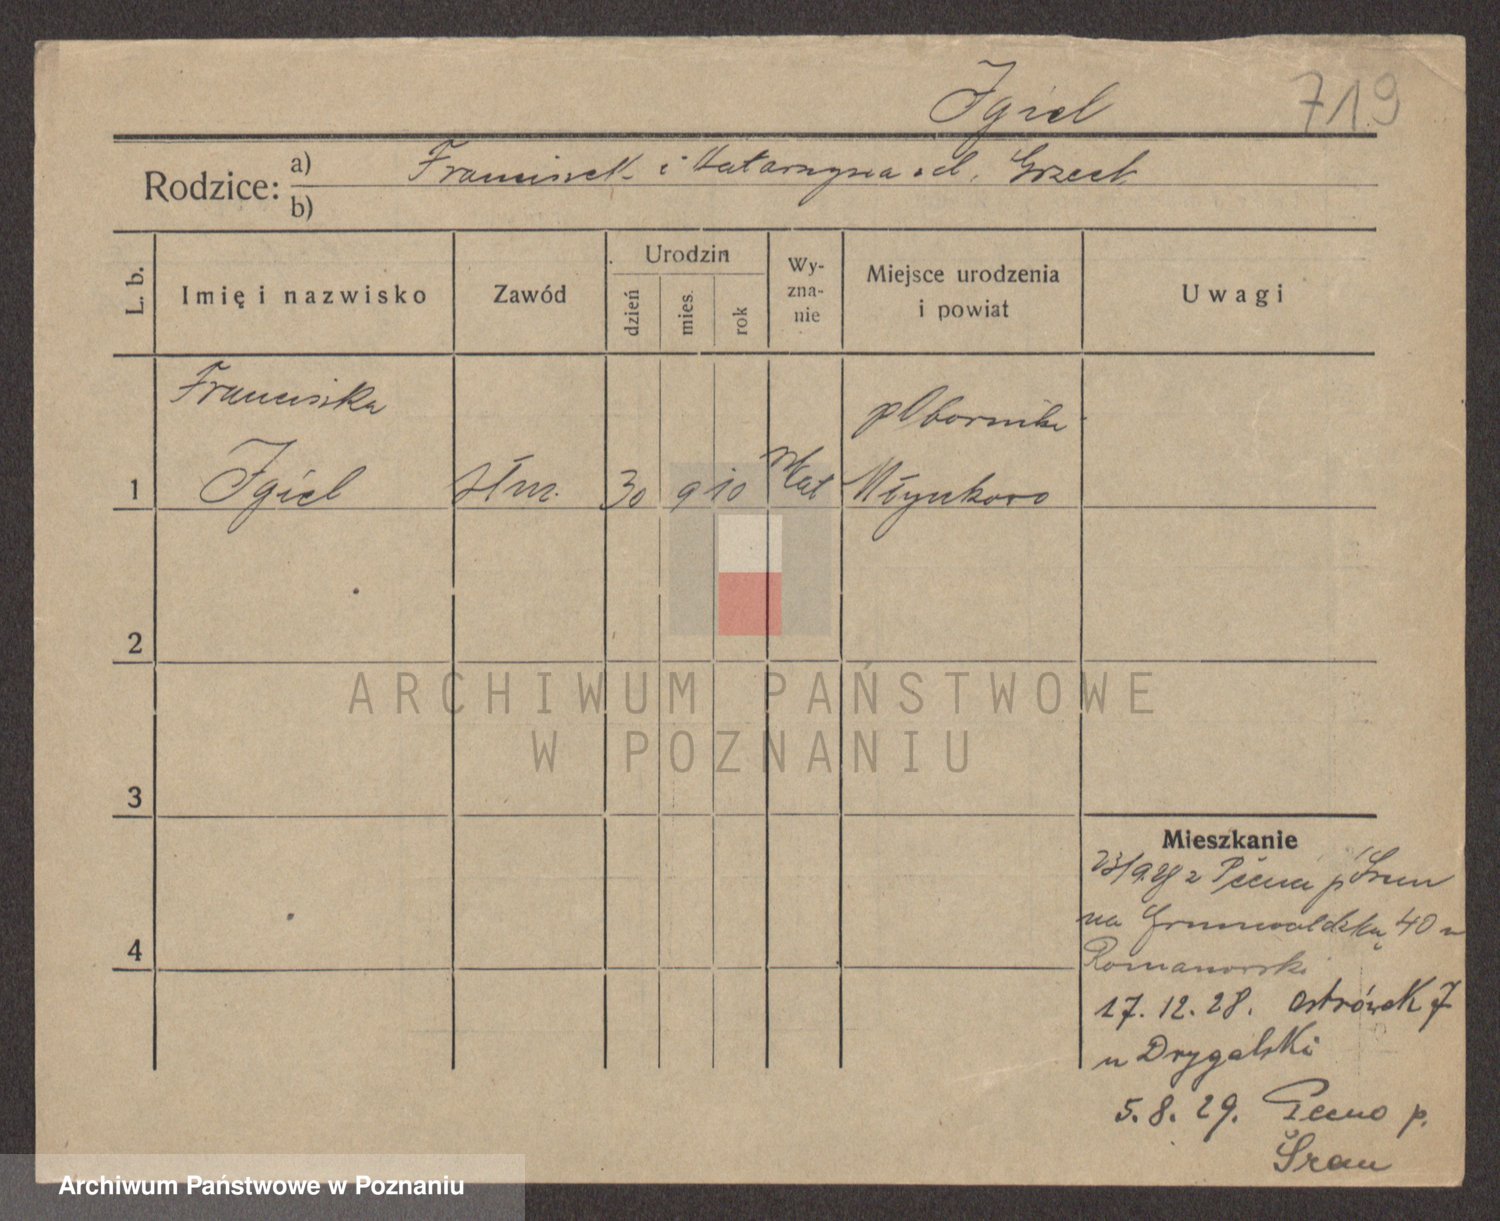 Igiel
719
Rodzice: a) Franciszek i Katarzyna z d. Grzech
b)
L. b. Imię i nazwisko Zawód Urodzin dzień mies. rok Wyznanie Miejsce urodzenia i powiat Uwagi
Franciszka pOborniki
1 Igiel służ. 30 9 10 Kat Młynkowo
2
ARCHIWUM PAŃSTWOWE
W POZNANIU
3
Mieszkanie
23/9.28 z p Śrem
4 na Grunwaldzką 40 u
Romanowski
17. 12. 28. Ostrówek 7
u Drygalski
5. 8. 29. p.
Śrem
Archiwum Państwowe w Poznaniu